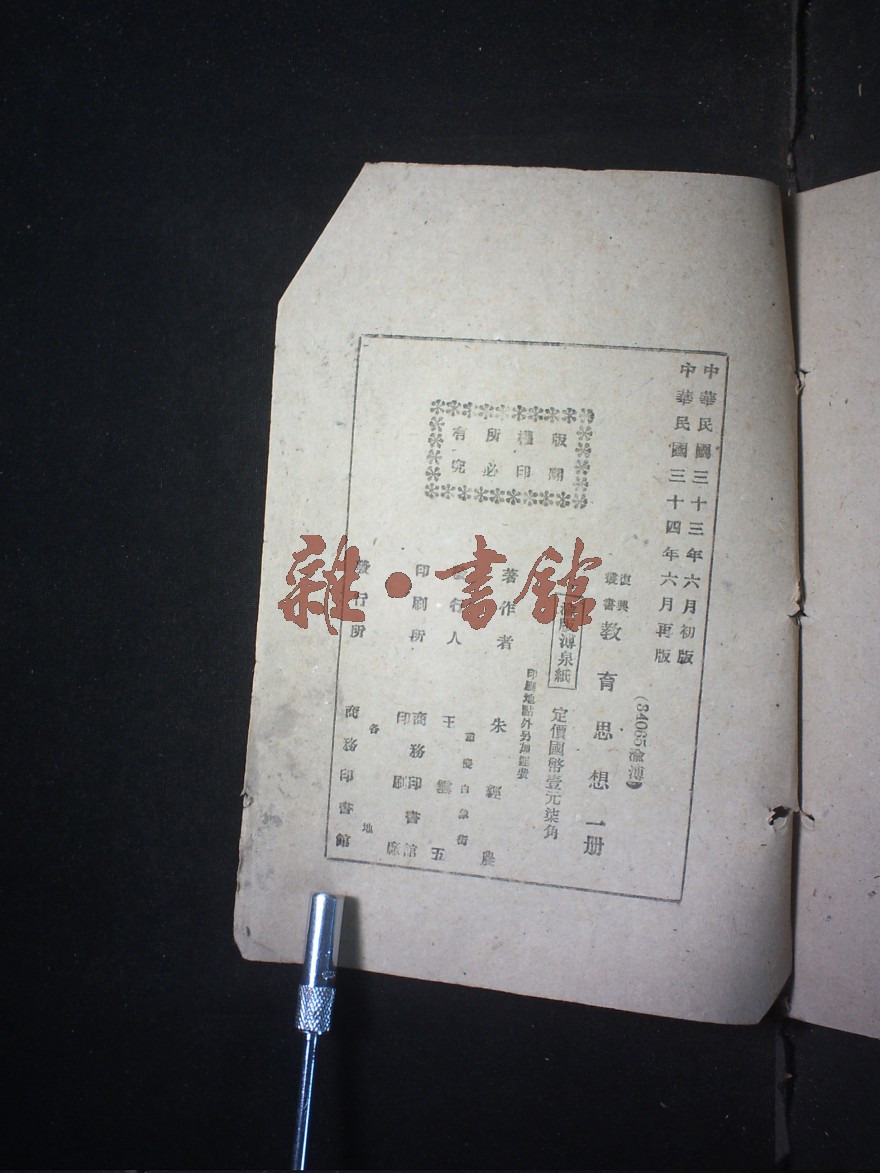 中華民國三十三年六月初版
中華民國三十四年六月再版
(34065渝溥)
復興
叢書
教育思想一册
溥泉紙
定價國幣壹元柒角
印刷地點外另加運費
版權所有
翻印必究
著作者
朱經農
重慶白象街
行人
王雲五
印刷所
商務印書館
印刷廠
發行所
各地
商務印書館
雜·書館